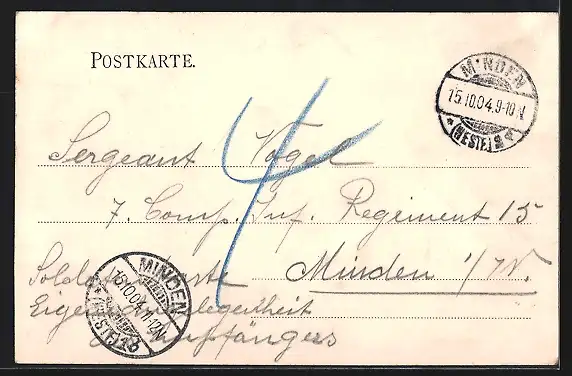 POSTKARTE.
MINDEN
15.10.04.9-10 N
* (WESTF.) *
Sergeant Vogel
7. Comp. Inf. Regiment 15
Minden i/W.
Eigene Angelegenheit
Empfängers
MINDEN
15.10.04.11-12 N
(WESTF.)
4